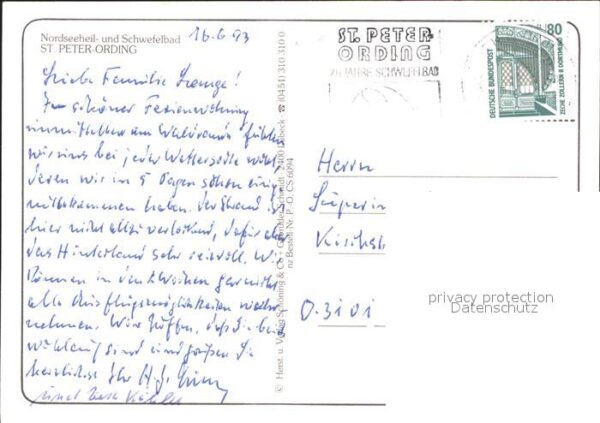 Nordseeheil- und Schwefelbad
ST. PETER-ORDING
16.6.93
Liebe Familie Lange!
In schöner Ferienwohnung
unmittelbar am Waldrand fühlen
wir uns bei jeder Wettersorte wohl,
deren wir in 5 Tagen schon einige
mitbekommen haben. Der Strand ist
hier nicht allzu verlockend, dafür aber
das Hinterland sehr reizvoll. Wir
können in den 2 Wochen gar nicht
alle Ausflugsmöglichkeiten wahr-
nehmen. Wir hoffen, daß Sie bei
wohlauf sind und grüßen Sie
herzlichst Ihr H.J.
und
© Herst. u. Verlag Schöning & Co + Gebrüder Schmidt · 2400 Lübeck · ☎ (0451) 310 310 0
nz Bestell Nr. P.-O. CS 6094
ST. PETER-
ORDING
JAHRE SCHWEFELBAD
80
DEUTSCHE BUNDESPOST
ZECHE ZOLLERN II DORTMUND
Herrn
Superin
Kirchst
O-3101
privacy protection
Datenschutz